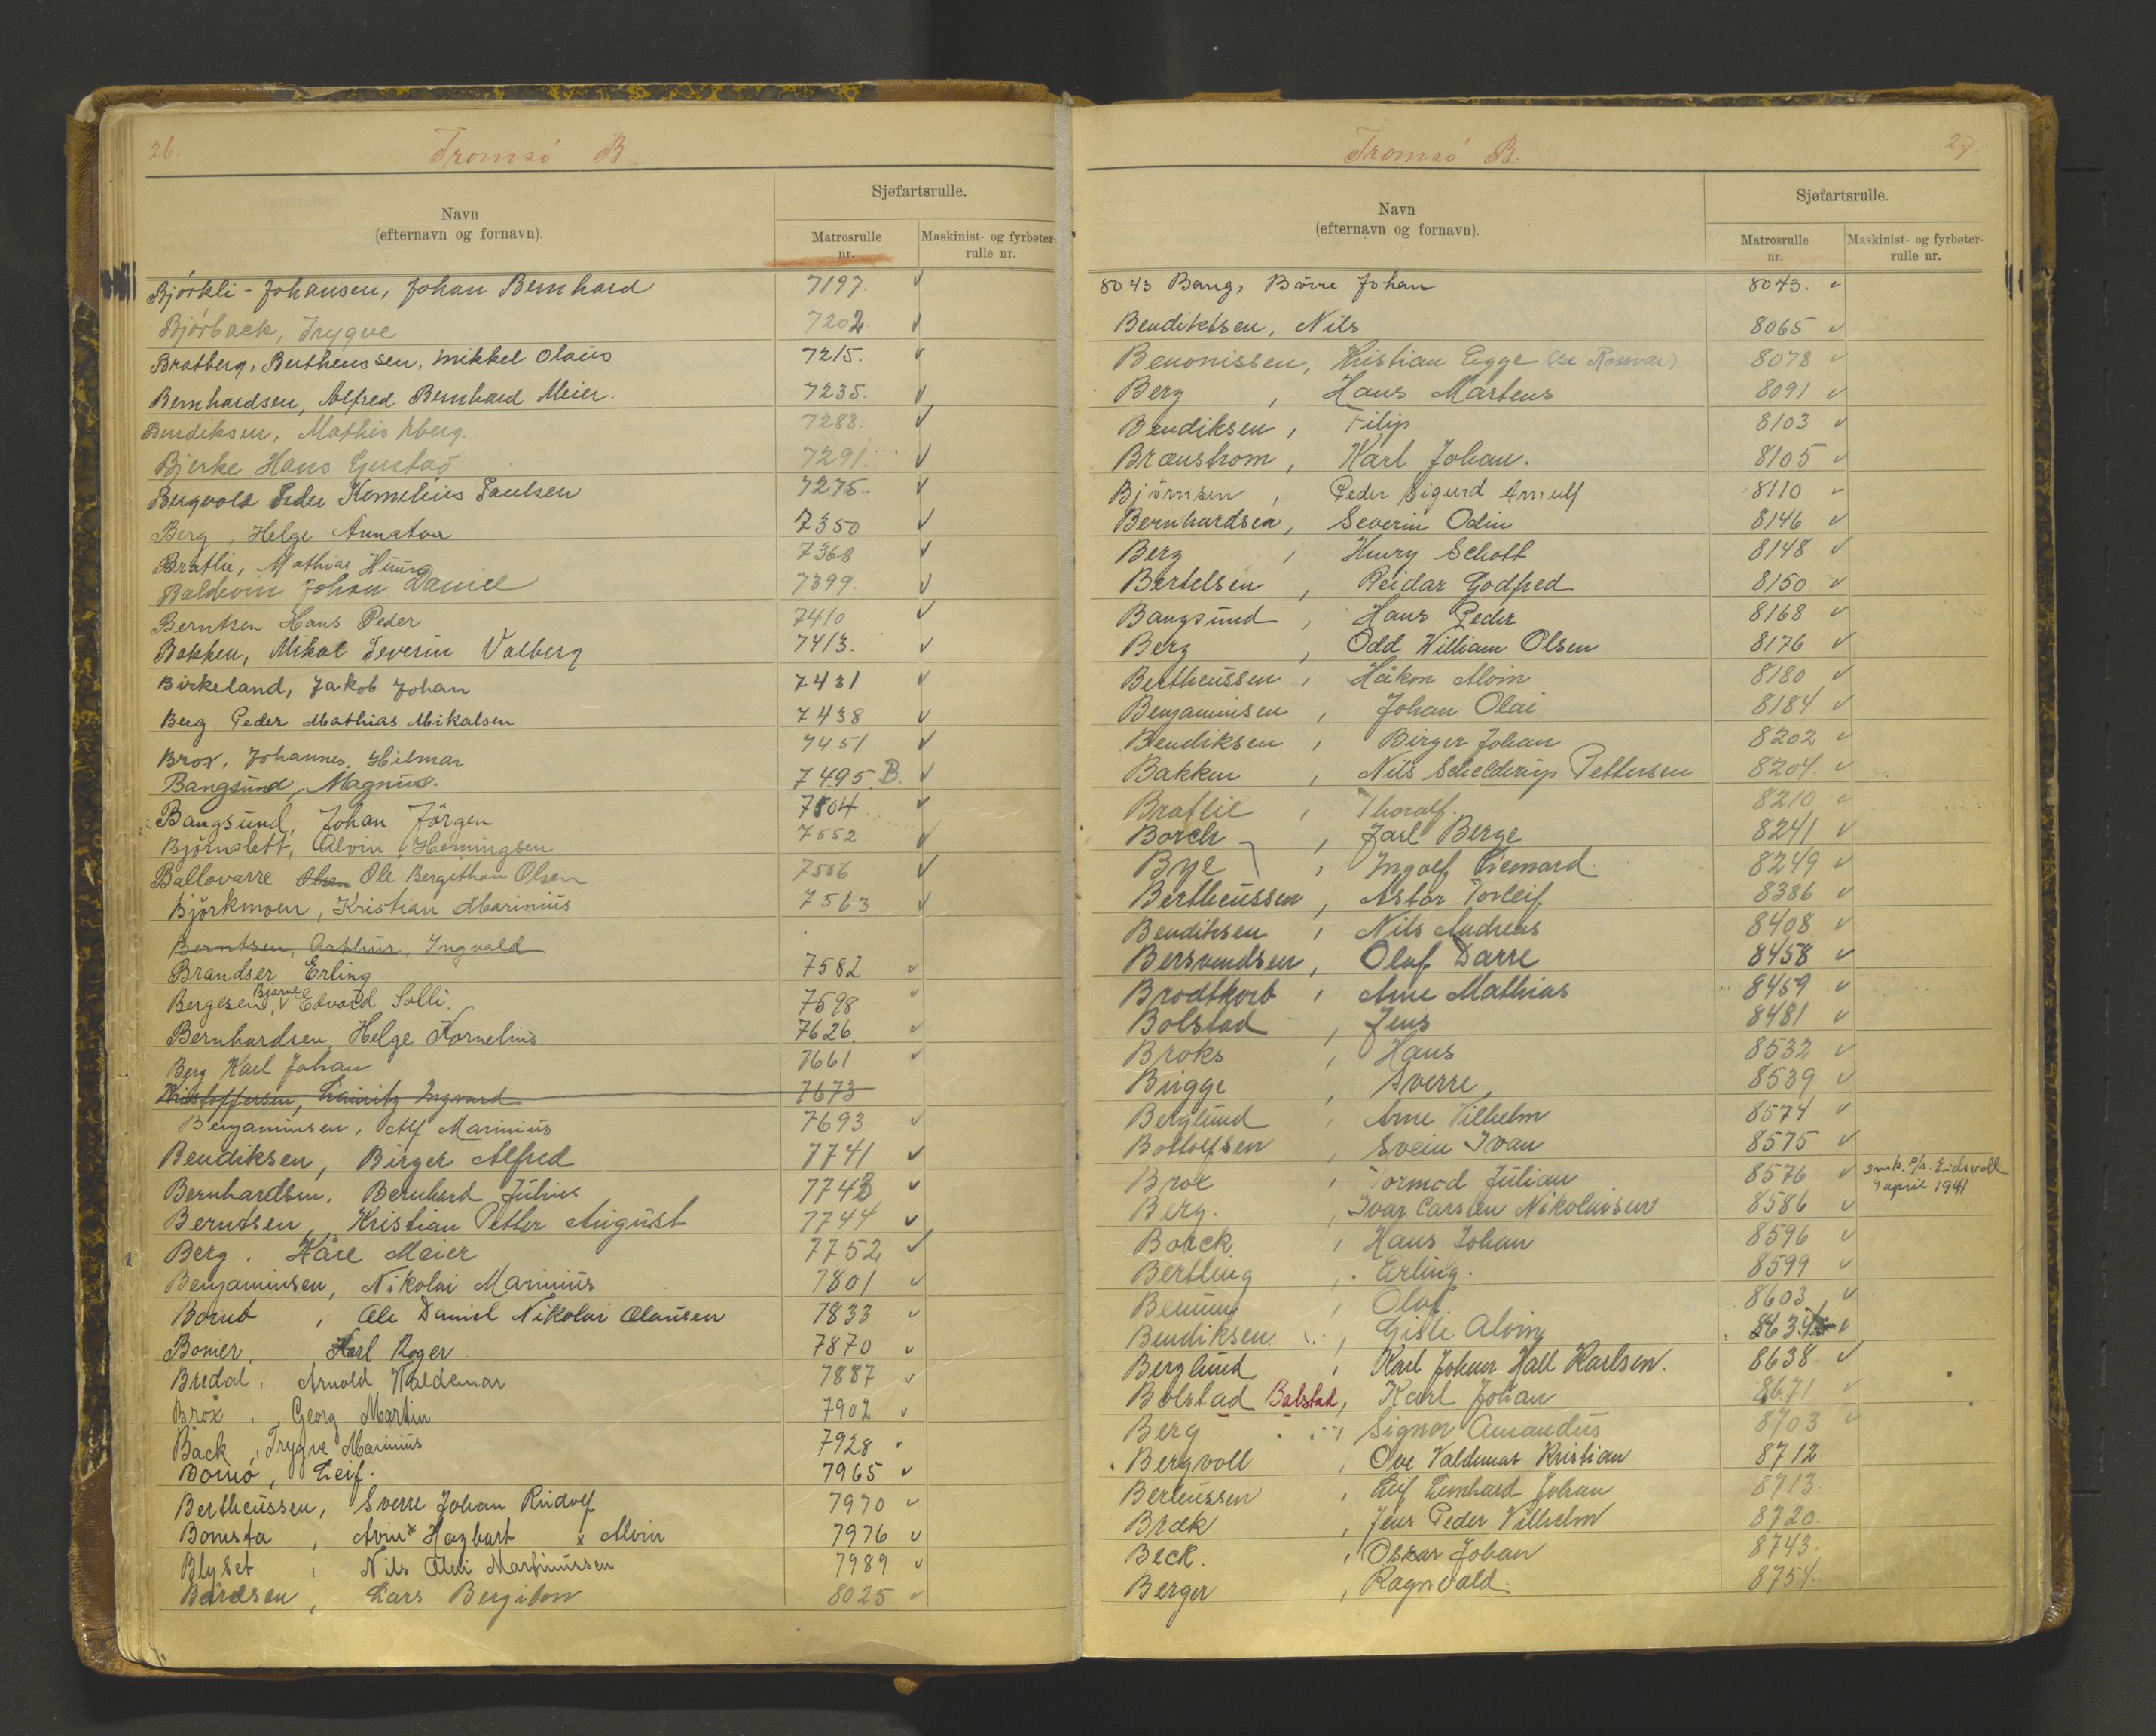 26.
Tromsø B.
Navn
(efternavn og fornavn).
Sjøfartsrulle.
Matrosrulle
nr.
Maskinist- og fyrbøter-
rulle nr.
Bjørkli - Johansen, Johan Bernhard 7197. ✓
Bjørback, Trygve 7202 ✓
Bratberg, Bertheussen, Mikkel Olaus 7215. ✓
Bernhardsen, Alfred Bernhard Meier. 7235. ✓
Bendiksen, Mathis Aberg. 7288. ✓
Bjerke Hans Gustav 7291. ✓
Bergvold Peder Kornelius Paulsen 7275. ✓
Berg, Helge Annaton 7350 ✓
Bratlie, Mathias 7368 ✓
Baldevin Johan Daniel 7399. ✓
Berntsen Hans Peder 7410 ✓
Bakken, Mikal Severin Valberg 7413. ✓
Birkeland, Jakob Johan 7431 ✓
Berg Peder Mathias Mikalsen 7438 ✓
Brox, Johannes Hilmar 7451 ✓
Bangsund, Magnus. 7495 B. ✓
Bangsund, Johan Jörgen 7504 ✓
Björnslett, Alvin Henningsen 7552 ✓
Ballovarre Olsen Ole Bergithon Olsen 7506 ✓
Björkmoen, Kristian Marinius 7563 ✓
Berntsen, Arthur Ingvald
Brandser Erling 7582 ✓
Bergesen, Bjarne Edvard Solli. 7598 ✓
Bernhardsen, Helge Kornelius 7626. ✓
Berg Karl Johan 7661 ✓
Kristoffersen, Lauritz Ingvard 7673
Benjaminsen, Alf Marinius 7693 ✓
Bendiksen, Birger Alfred 7741 ✓
Bernhardsen, Bernhard Julius 7743 ✓
Berntsen, Kristian Petter August 7744 ✓
Berg, Kåre Meier 7752 ✓
Benjaminsen, Nikolai Marinius 7801 ✓
Bornt, Ole Daniel Nikolai Olausen 7833 ✓
Bonier, Karl Roger 7870 ✓
Bredal, Arnold Waldemar 7887 ✓
Brox, Georg Martin 7902 ✓
Bäck, Trygve Marinius 7928
Bomsö, Leif. 7965 ✓
Bertheussen, Sverre Johan Rudolf 7970 ✓
Bomsta, Arvin x Hagbart x Alvin 7976 ✓
Blyset, Nils Olai Martinussen 7989 ✓
Bårdsen, Lars Bergiton 8025 ✓
27.
Tromsø B.
Navn
(efternavn og fornavn).
Sjøfartsrulle.
Matrosrulle
nr.
Maskinist- og fyrbøter-
rulle nr.
8043 Bang, Börre Johan 8043. ✓
Bendiktsen, Nils 8065 ✓
Benonissen, Kristian Egge (se Rossvær) 8078 ✓
Berg, Hans Martens 8091 ✓
Bendiksen, Filip 8103 ✓
Brænstrom, Karl Johan. 8105 ✓
Björnsen, Peder Sigurd Arnulf 8110 ✓
Bernhardsen, Severin Odin 8146 ✓
Berg, Henry Schott 8148 ✓
Bertelsen, Reidar Godfred 8150 ✓
Bangsund, Hans Peder 8168 ✓
Berg, Odd William Olsen 8176 ✓
Bertheussen, Håkon Alvin 8180 ✓
Benjaminsen, Johan Olai 8184 ✓
Bendiksen, Birger Johan 8202 ✓
Bakken, Nils Schelderup Pettersen 8204. ✓
Bratlie, Thoralf. 8210 ✓
Borch, Jarl Berge 8241 ✓
Bye, Ingolf Leonard. 8249 ✓
Bertheussen, Astor Torleif 8386 ✓
Bendiksen, Nils Andreas 8408 ✓
Bersvendsen, Olaf Darre 8458 ✓
Brodtkorb, Arne Mathias 8459 ✓
Bolstad, Jens 8481 ✓
Broks, Hans 8532 ✓
Brigge, Sverre 8539 ✓
Berglund, Arne Vilhelm 8574 ✓
Bottolfsen, Svein Ivan 8575 ✓
Brox, Tormod Julian 8576 ✓ omk. D/s. Eidsvoll
4 april 1941
Berg., Ivar Carsten Nikolaisen 8586 ✓
Boack, Hans Johan 8596 ✓
Bertling, Erling. 8599 ✓
Benum, Olaf. 8603 ✓
Bendiksen, Gisle Alvin 8634 ✓
Berglund, Karl Johan Hall Karlsen. 8638 ✓
Bolstad Balstad, Karl Johan 8671 ✓
Berg, Signor Amandus 8703 ✓
Bergvoll, Ove Valdemar Kristian 8712.
Berteussen, Leif Lenhard Johan 8713.
Bræk, Jens Peder Vilhelm 8720.
Beck., Oskar Johan 8743.
Berger, Ragnvald. 8754.